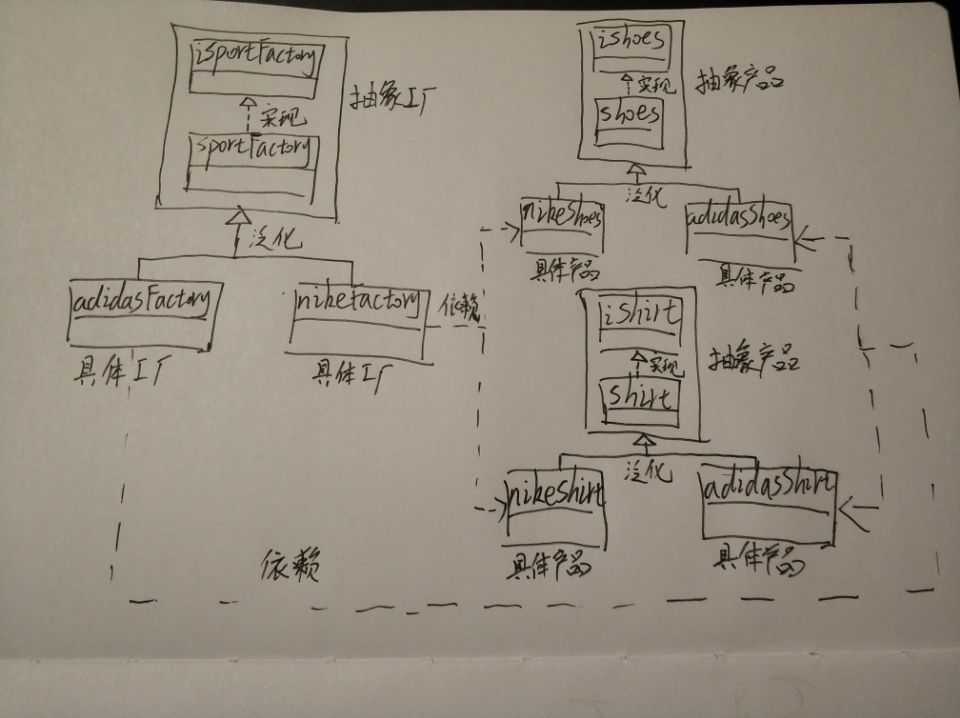 isportFactory
实现
sportFactory
抽象工厂
泛化
adidasFactory
具体工厂
nikefactory
具体工厂
依赖
依赖
ishoes
实现
shoes
抽象产品
泛化
nikeshoes
具体产品
adidasshoes
具体产品
ishirt
实现
shirt
抽象产品
泛化
nikeshirt
具体产品
adidasshirt
具体产品